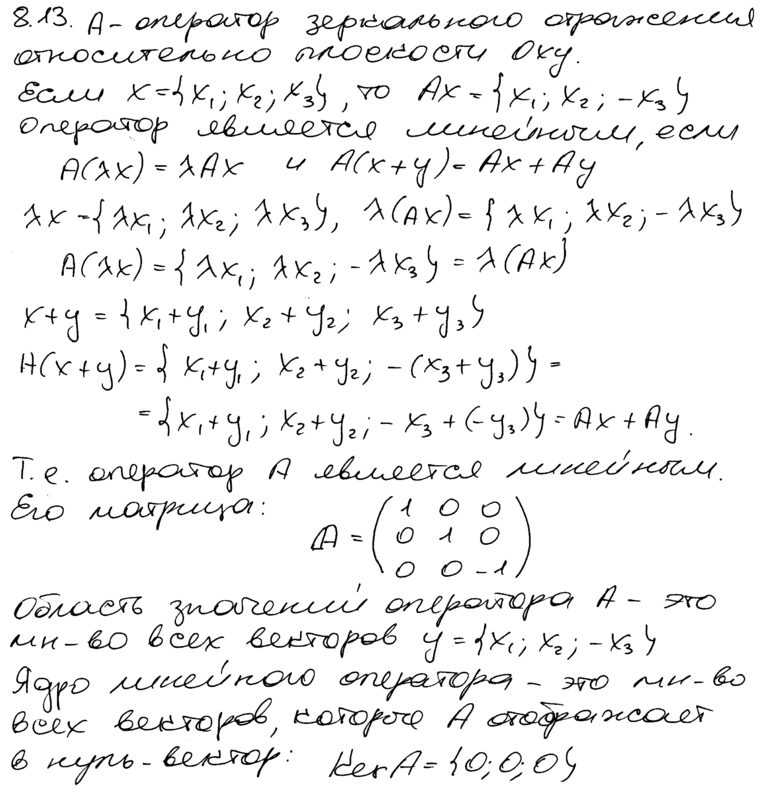 8.13. A - оператор зеркального отражения
относительно плоскости Oxy.
Если x={x₁; x₂; x₃}, то Ax = {x₁; x₂; -x₃}
Оператор является линейным, если
A(λx) = λAx и A(x+y) = Ax + Ay
λx = {λx₁; λx₂; λx₃}, λ(Ax) = {λx₁; λx₂; -λx₃}
A(λx) = {λx₁; λx₂; -λx₃} = λ(Ax)
x+y = {x₁+y₁; x₂+y₂; x₃+y₃}
A(x+y) = {x₁+y₁; x₂+y₂; -(x₃+y₃)} =
= {x₁+y₁; x₂+y₂; -x₃+(-y₃)} = Ax + Ay.
Т.е. оператор A является линейным.
Его матрица:
1 0 0
A = (0 1 0)
0 0 -1
Область значений оператора A - это
мн-во всех векторов y = {x₁; x₂; -x₃}
Ядро линейного оператора - это мн-во
всех векторов, которое A отображает
в нуль-вектор: Ker A = {0; 0; 0}